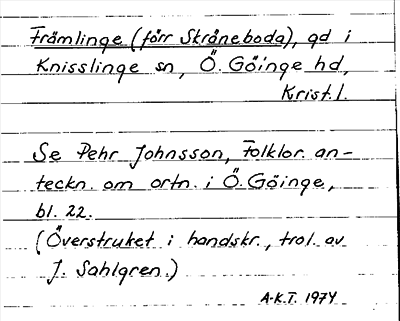 Främlinge (förr Skråneboda), gd i
Knisslinge sn, Ö. Göinge hd,
Krist. l.
Se Pehr Johnsson, Folklor. an-
teckn. om ortn. i Ö. Göinge,
bl. 22.
(Överstruket i handskr., trol. av
J. Sahlgren.)
A-K.T. 1974